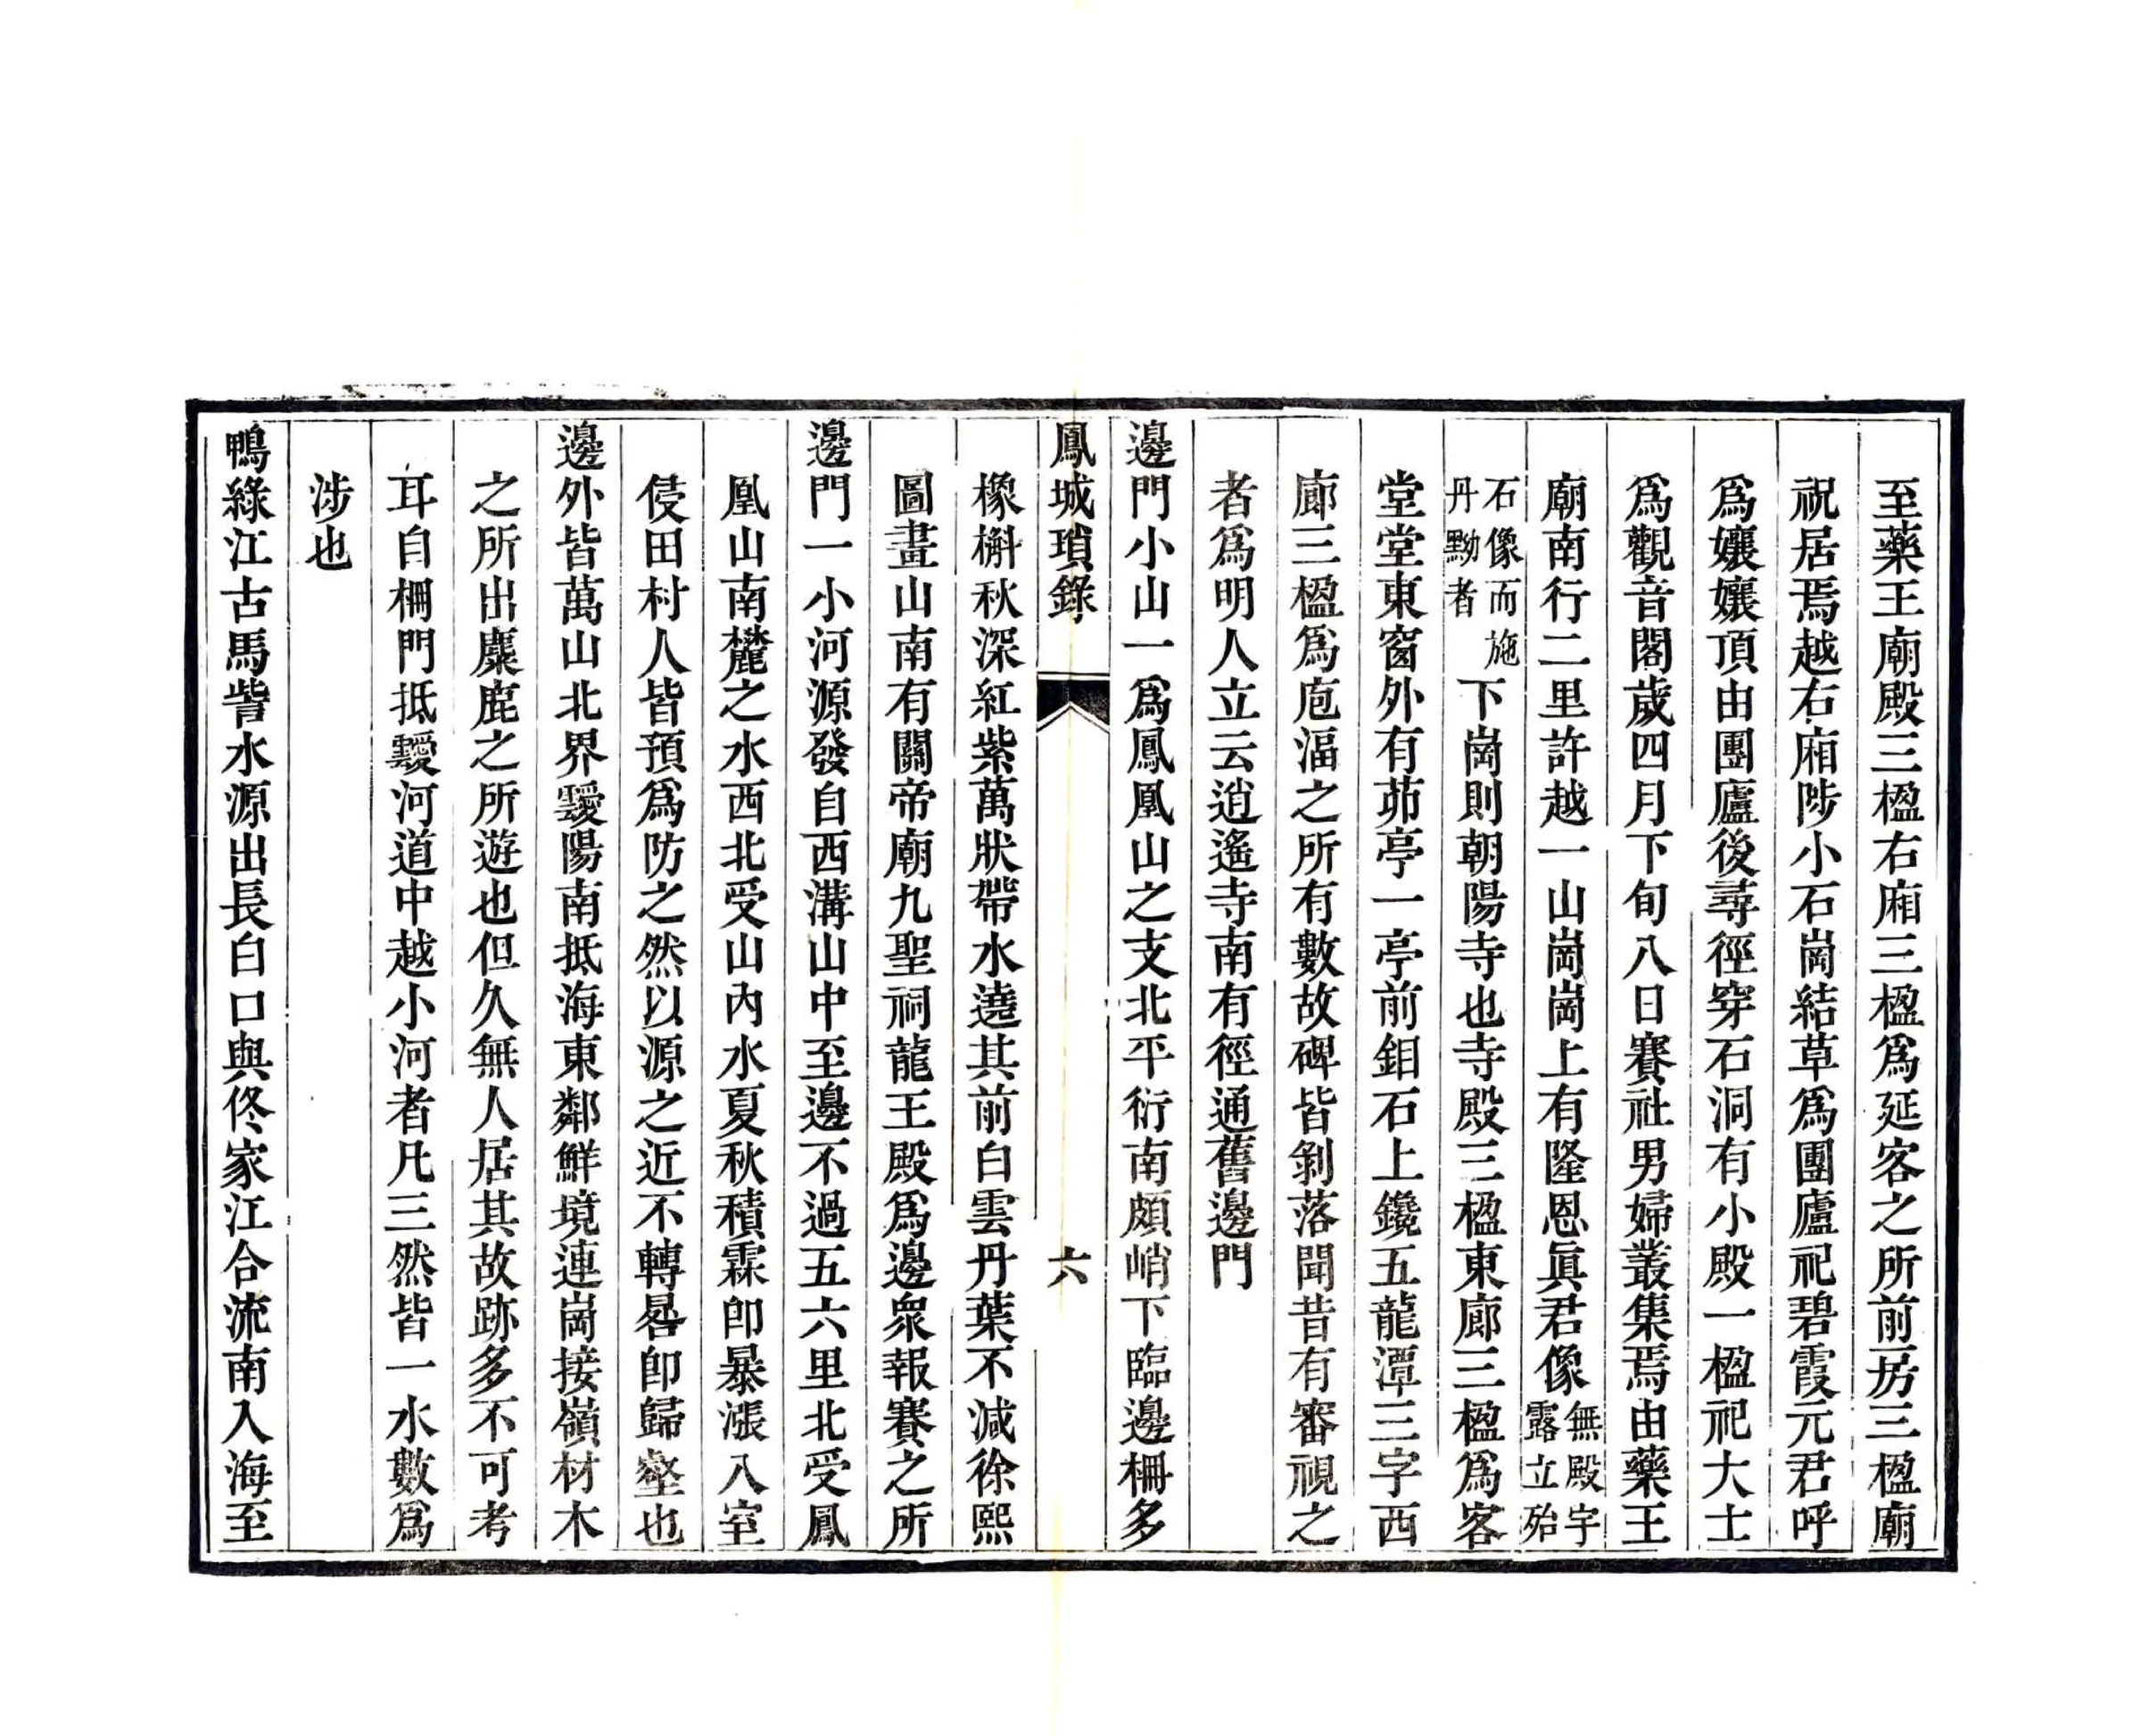 至藥王廟殿三楹右廂三楹爲延客之所前房三楹廟
祝居焉越右廂陟小石崗結草爲團廬祀碧霞元君呼
爲孃孃頂由團廬後尋徑穿石洞有小殿一楹祀大士
爲觀音閣歲四月下旬八日賽社男婦叢集焉由藥王
廟南行二里許越一山崗崗上有隆恩眞君像無殿宇露立殆
石像而施丹黝者下崗則朝陽寺也寺殿三楹東廊三楹爲客
堂堂東窗外有茆亭一亭前鉬石上鑱五龍潭三字西
廊三楹爲庖湢之所有數故碑皆剝落聞昔有審視之
者爲明人立云逍遙寺南有徑通舊邊門
邊門小山一爲鳳凰山之支北平衍南頗峭下臨邊柵多
鳳城瑣錄
六
橡槲秋深紅紫萬狀帶水遶其前白雲丹葉不減徐熙
圖畫山南有關帝廟九聖祠龍王殿爲邊衆報賽之所
邊門一小河源發自西溝山中至邊不過五六里北受鳳
凰山南麓之水西北受山內水夏秋積霖卽暴漲入室
侵田村人皆預爲防之然以源之近不轉晷卽歸壑也
邊外皆萬山北界靉陽南抵海東鄰鮮境連崗接嶺材木
之所出麋鹿之所遊也但久無人居其故跡多不可考
耳自柵門抵靉河道中越小河者凡三然皆一水數爲
涉也
鴨綠江古馬訾水源出長白口與佟家江合流南入海至